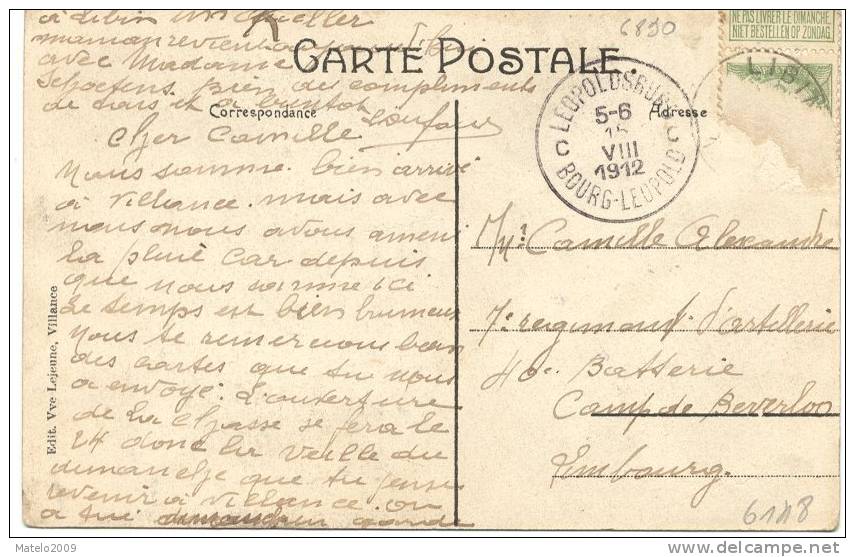 à Libin
maman revient
avec Madame
bien des compliments
de tous et à bientot
CARTE POSTALE
Correspondance
Adresse
Cher Camille
Nous somme bien arrivé
à Villance. mais avec
nous nous avons amené
la pluie car depuis
que nous somme ici
le temps est bien brumeux
Nous te remercions bien
des cartes que tu nous
a envoyé. L'ouverture
de la chasse se fera le
24 donc la veille du
dimanche que tu pense
revenir à Villance. on
a
Edit. Vve Lejeune, Villance
6890
NE PAS LIVRER LE DIMANCHE
NIET BESTELLEN OP ZONDAG
LEOPOLDSBURG
5-6
15
VIII
1912
BOURG-LEOPOLD
C C
Mr. Camille Alexandre
7e regiment d'artellerie
40e Batterie
Camp de Beverloo
Limbourg.
6118
Matelo2009
http://www.delcampe.net